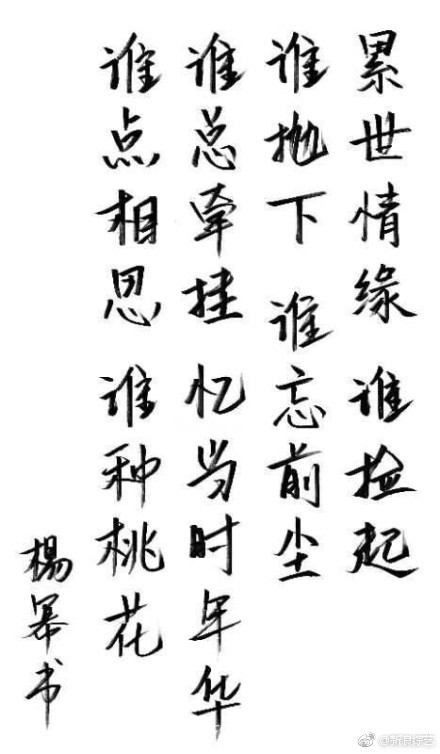 累世情缘 谁捡起
谁抛下 谁忘前尘
谁总牵挂 忆当时年华
谁点相思 谁种桃花
楊幂书
@新浪综艺